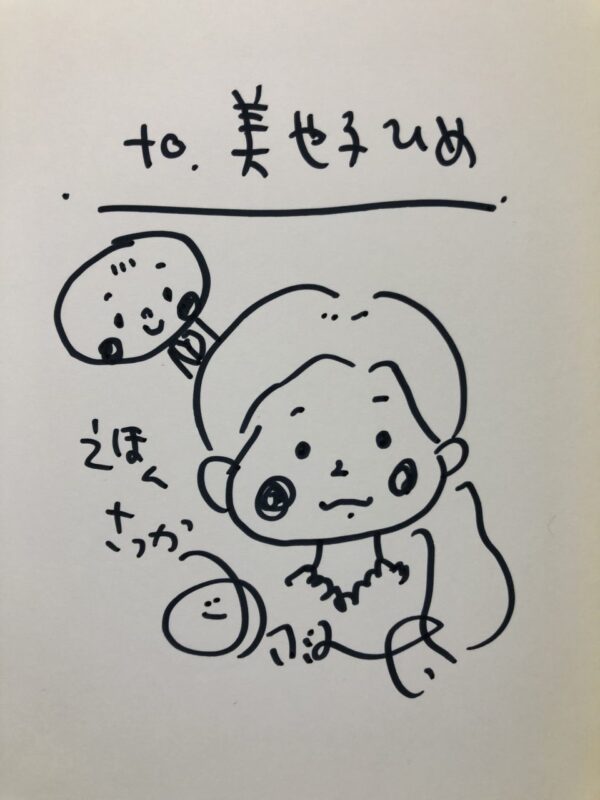 to. 美也子ひめ
えほん
さっか